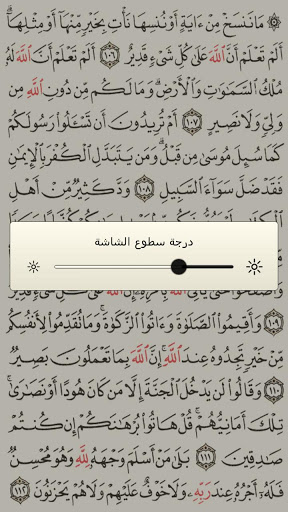 ۞ مَا نَنسَخْ مِنْ ءَايَةٍ أَوْ نُنسِهَا نَأْتِ بِخَيْرٍ مِّنْهَآ أَوْ مِثْلِهَآ ۗ
أَلَمْ تَعْلَمْ أَنَّ ٱللَّهَ عَلَىٰ كُلِّ شَىْءٍ قَدِيرٌ ١٠٦ أَلَمْ تَعْلَمْ أَنَّ ٱللَّهَ لَهُۥ
مُلْكُ ٱلسَّمَٰوَٰتِ وَٱلْأَرْضِ ۗ وَمَا لَكُم مِّن دُونِ ٱللَّهِ مِن
وَلِىٍّ وَلَا نَصِيرٍ ١٠٧ أَمْ تُرِيدُونَ أَن تَسْـَٔلُوا۟ رَسُولَكُمْ
كَمَا سُئِلَ مُوسَىٰ مِن قَبْلُ ۗ وَمَن يَتَبَدَّلِ ٱلْكُفْرَ بِٱلْإِيمَٰنِ
فَقَدْ ضَلَّ سَوَآءَ ٱلسَّبِيلِ ١٠٨ وَدَّ كَثِيرٌ مِّنْ أَهْلِ
درجة سطوع الشاشة
١٠٩ وَأَقِيمُوا۟ ٱلصَّلَوٰةَ وَءَاتُوا۟ ٱلزَّكَوٰةَ ۚ وَمَا تُقَدِّمُوا۟ لِأَنفُسِكُم
مِّنْ خَيْرٍ تَجِدُوهُ عِندَ ٱللَّهِ ۗ إِنَّ ٱللَّهَ بِمَا تَعْمَلُونَ بَصِيرٌ
١١٠ وَقَالُوا۟ لَن يَدْخُلَ ٱلْجَنَّةَ إِلَّا مَن كَانَ هُودًا أَوْ نَصَٰرَىٰ ۗ
تِلْكَ أَمَانِيُّهُمْ ۗ قُلْ هَاتُوا۟ بُرْهَٰنَكُمْ إِن كُنتُمْ
صَٰدِقِينَ ١١١ بَلَىٰ مَنْ أَسْلَمَ وَجْهَهُۥ لِلَّهِ وَهُوَ مُحْسِنٌ
فَلَهُۥٓ أَجْرُهُۥ عِندَ رَبِّهِۦ وَلَا خَوْفٌ عَلَيْهِمْ وَلَا هُمْ يَحْزَنُونَ ١١٢